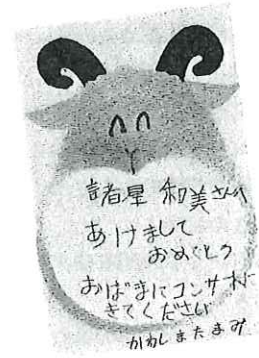 諸星 和美さんへ
あけまして
おめでとう
おばまにコンサートに
きてください
かわしまたまみ